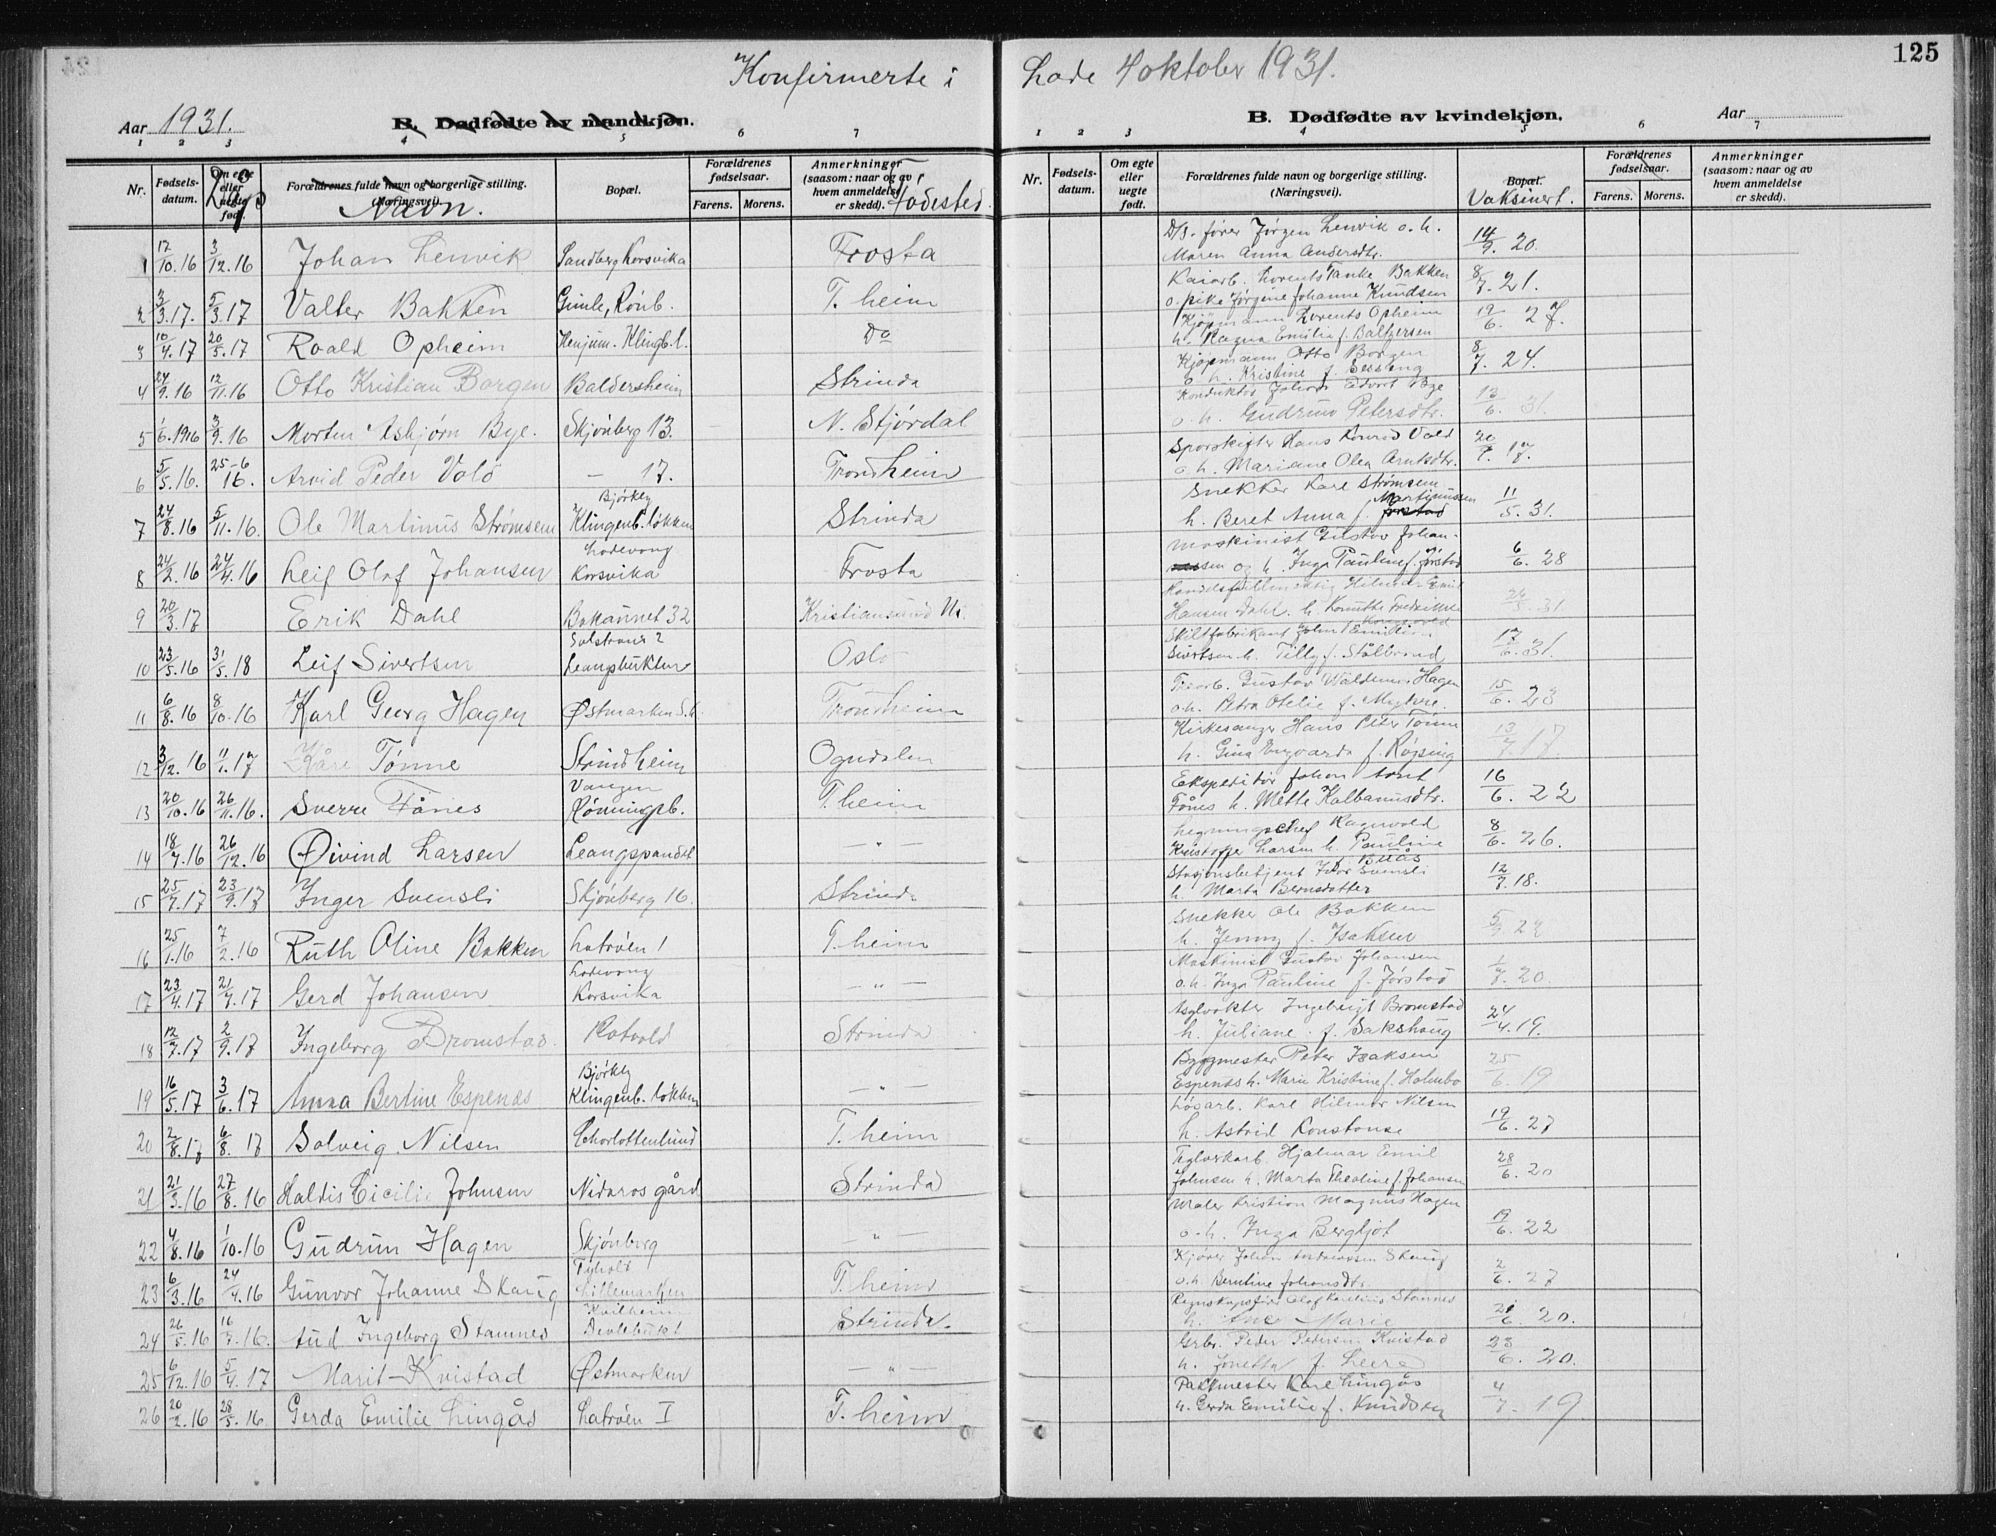 125
Konfirmerte i Lade 4 oktober 1931.
Aar 1931.
B. Dødfødte av mandkjøn.
B. Dødfødte av kvindekjøn.
Aar
1 2 3 4 5 6 7
1 2 3 4 5 6 7
Nr. Fødsels-datum. Om egte eller uegte født. Forældrenes fulde navn og borgerlige stilling. (Næringsvei). Bopæl. Forældrenes fødselsaar. Farens. Morens. Anmerkninger (saasom: naar og av hvem anmeldelse er skedd).
Døp Navn. Fødested.
Nr. Fødsels-datum. Om egte eller uegte født. Forældrenes fulde navn og borgerlige stilling. (Næringsvei). Bopæl. Forældrenes fødselsaar. Farens. Morens. Anmerkninger (saasom: naar og av hvem anmeldelse er skedd).
Vaksinert.
1 12/10.16 3/12.16 Johan Lenvik Sandberg Korsvika Frosta
2 3/3.17. 5/3.17 Valter Bakken Gimle, Rönb. T.heim
3 10/4.17 20/5.17 Roald Opheim Henjum. Klingb.l. Do
4 24/9.16 12/11.16 Otto Kristian Borgen Baldersheim Strinda
5 1/6.1916 3/9.16 Morten Asbjørn Bye. Skjönberg 13. N. Stjørdal
6 5/5.16. 25-6 16. Arvid Peder Vold — 17. Trondheim
7 24/8.16 5/11.16. Ole Martinus Strømsem Bjørkly Klingenb. løkken Strinda
8 24/2.16 24/4.16 Leif Olaf Johansen Ladevang Korsvika Frosta
9 20/3.17 Erik Dahl Bakaunet 32 Kristiansund N.
10 23/5.16 31/5.18 Leif Sivertsen Solstrand 2 Leangbukten Oslo
11 6/8.16 8/10.16 Karl Georg Hagen Østmarken S.h. Trondheim
12 3/12.16 11/1.17 Kåre Tønne Strindheim Ogndalen
13 20/10.16 26/11.16. Sverre Fånes Vangen Rönningsb. T.heim
14 18/7.16 26/12.16 Øivind Larsen Leangspandet — " —
15 25/7.17 23/9.17 Inger Svensli Skjönberg 16. Strinda
16 25/1.16 7/2.16 Ruth Oline Bakken Latröen 1 T.heim
17 23/4.17 21/7.17 Gerd Johansen Ladevang Korsvika — " —
18 12/7.17 2/9.17 Ingeborg Bromstad. Rotvold Strinda
19 16/5.17 3/6.17 Anna Bertine Espenes Bjørkly Klingenb. løkken — " —
20 2/8.17 6/8. 17 Solveig Nilsen Charlottenlund T.heim
21 21/3.16 27/8.16 Haldis Cicilie Johnsen Nidaros gård Strinda
22 4/8.16 1/10.16 Gudrun Hagen Skjönberg " —
23 6/3.16 24/4.16 Gunvor Johanne Skaug Tyholt Lillemarken T.heim
24 26/5.16 16/7.16. Aud Ingeborg Stamnes Strinda.
25 6/12.16 5/4.17 Marit Kvistad Østmarken — " —
26 20/2.16 28/5.16 Gerda Emilie Lingås Latröen I T.heim
D/S. fører Jørgen Lenvik o.h.
Maren Anna Andersdtr. 14/9.20.
Kaiarb. Lorents Tanke Bakken
o. pike Jørgine Johanne Knudsen 8/7.21.
Kjøpmann Lorents Opheim
h. Ragna Emilie f. Baltzersen 19/6. 27.
Kjøpmann Otto Borgen
o h. Kristine f. Sesseng 8/7.24.
Konduktør Johan Edvart Bye
o.h. Gudrun Petersdtr. 13/6.31.
Sporskifter Hans Konrad Vold
o.h. Mariane Olea Arntsdtr.
Snekker Karl Strømsem
h. Beret Anna f. Martinussen 11/5.31.
Maskinist Gustav Johan-
sen og h. Inga Pauline f. Jørstad 6/6.28
Handelsfullmektig Hilmar Emil
Hansen Dahl. h. 24/5.31.
Skiltfabrikant John Emilius
Sivertsen h. Tilly f. Stålbrand 17/6.31.
Gustav Waldemar Hagen
o.h. Petra Otelie f. Myhre. 15/6.23
Kirkesanger Hans Peter Tønne
h. Gina Ingvarda f. Røising 13/7.17
Ekspeditør Johan Arnt
Fånes h. Mette Kalbanusdtr. 16/6. 22
Legningschef Ragnvald
Kristoffer Larsen h. Pauline f. Buås 8/6.26.
Stasjonsbetjent Ivar Svensli
h. Marta Berntsdatter 12/7.18.
Snekker Ole Bakken
h. Jenny f. Isaksen
Maskinist Gustav Johansen
o.h. Inga Pauline f. Jørstad 1/7.20.
Asylvokter Ingebrigt Bromstad
h. Juliane f. Sakshaug 24/4.19.
Byggmester Peter Isaksen
Espenes h. Marie Kristine f. Holmbo 25/6.19
Løsarb. Karl Hilmar Nilsen
h. Astrid Konstanse 19/6.27
Teglverkarb. Hjalmar Emil
Johnsen h. Marta Theoline f. Johansen 28/6.20
Maler Kristian Magnus Hagen
o.h. Inga Bergljot 19/6.22
Johan Skaug
o.h. Berntine Johansdtr. 2/6.27
Regnskapsfører Olaf Karelius Stamnes
h. Ane Marie 21/6.20.
Grbr. Peder Petersen Kvistad
h. Jonetta f. Leere 23/6.20.
Pakkmester Karl Lingås
h. Gerda Emilie f. Knudsen 4/7.19